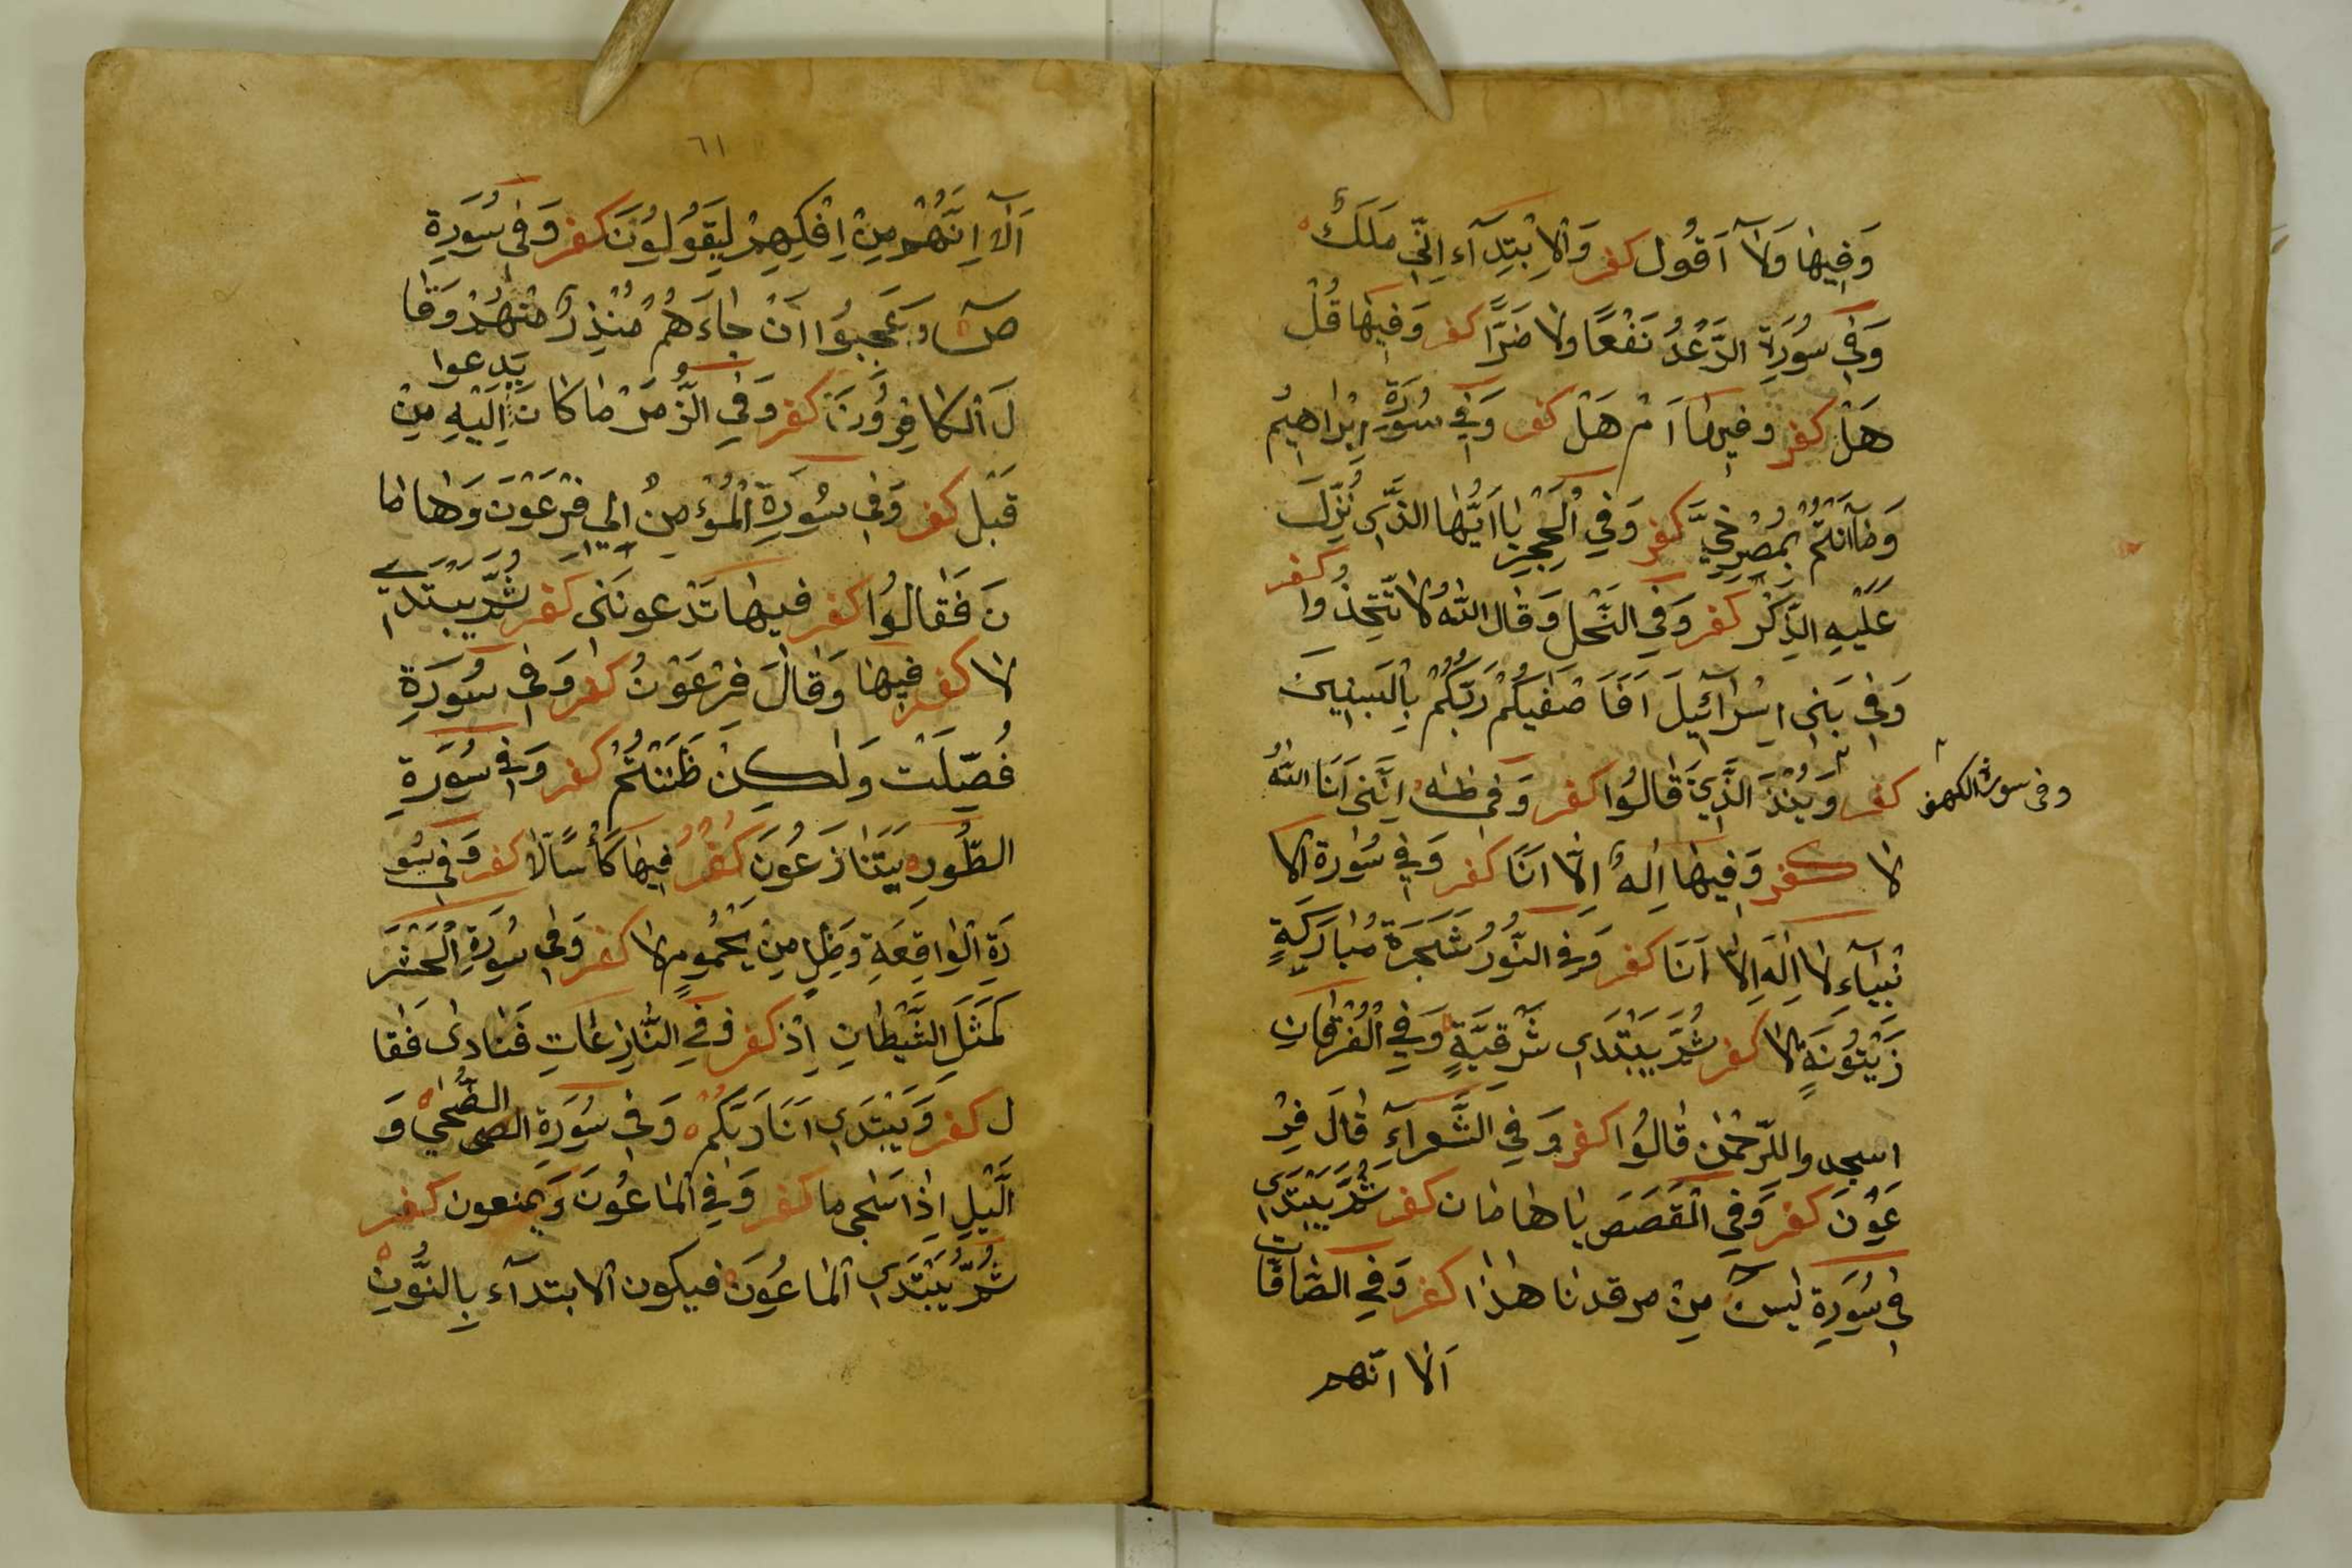 وَفِيهَا وَلَآ اَقُول كفر وَالْاِبْتِدَآء اِنِّي مَلَكٌ
وَفِي سُورَةِ الرَّعْدُ نَفْعًا ولا ضَرًّا كفر وَفِيهَا قُلْ
هَلْ كفر وفيها اَمْ هَلْ كفر وَفِي سُورَةِ اِبْرَاهِيمُ
وَمَآاَنْتُمْ بِمُصْرِخِيَّ كفر وَفِي الْحِجْرِ يَا اَيُّهَا الَّذِي نُزِّلَ
عَلَيْهِ الذِّكْر كفر وَفِي النَّحْل وَقَال اللّهُ لَا تَتَّخِذُوا كفر
وَفِي بَنِي اِسْرَآئِيلَ اَفَاَصْفٰيكُمْ رَبُّكُمْ بِالْبَنِينَ
وفى سورة الكهف
كفر وَيُنْذِرَ الَّذِينَ قَالُوا كفر وَفِي طٰهٰ اِنَّنِي اَنَا اللّهُ
لا كفر وَفِيهَا اِلهٌ اِلَّا اَنَا كفر وَفِي سُورَةِ الا
نْبِيَآءِ لَا اِلٰهَ اِلَّا اَنَا كفر وَفِي النُّورُ شَجَرَةٍ مُبَارَكَةٍ
زَيْتُونَةٍ لَا كفر ثُمَّ يَبْتَدِي شَرْقِيَّةٍ وَفِي الْفُرْقَانِ
اسجدوا للرّحْمٰن قَالُوا كفر وَفِي الشُّعَرَآءِ قَالَ فِرْ
عَوْنَ كفر وَفِي الْقَصَصِ يَا هَامَان كفر ثُمَّ يَبْتَدِي
فِي سُورَةِ يٰسٓ مِنْ مرقدنا هٰذَا كفر وَفِي الصَّافَّات
اَلَا اِنّهم
٦١
اَلَآ اِنَّهُمْ مِنْ اِفْكِهِمْ لَيَقُولُونَ كفر وَفِي سُورَةِ
صٓ وَعَجِبُوا اَنْ جَاءَهُمْ مُنْذِرٌ مِنْهُمْ وَقَا
لَ الْكَافِرُونَ كفر وَفِي الزُّمَرْ مَا كَانَ يَدعوا اِلَيْهِ مِنْ
قَبْل كفر وَفِي سُورَةِ الْمُؤْمِنُ اِلٰي فِرْعَوْنَ وَهَامَا
نَ فَقَالُوا كفر فِيهَا تَدْعونَنِي كفر ثُمَّ يَبْتَدِي
لَا كفر فِيهَا وَقَالَ فِرْعَوْنُ كفر وَفِي سُورَةِ
فُصِّلَتْ وَلٰكِنْ ظَنَنْتُمْ كفر وَفِي سُورَةِ
الطُّورِ يَتَنَازَعُونَ كفر فِيهَا كَأْسًا لَا كفر وَفِي سُو
رَةِ الْوَاقِعَةِ وَظِلٍّ مِنْ يَحْمُومٍ لَا كفر وَفِي سُورَةِ الْحَشْرَ
كَمَثَلِ الشَّيْطَانِ اِذْ كفر وَفِي النَّازِعَاتِ فَنَادٰى فَقَا
ل كفر وَيَبْتَدِي اَنَا رَبُّكُمُ وَفِي سُورَةِ الضُّحٰي وَ
الَّيْلِ اِذَا سَجٰى ما كفر وَفِي الْمَاعُونَ وَيَمنعون كفر
ثُمَّ يَبْتَدِي الْمَاعُونَ فيكون الابتدآء بِالنُّونِ